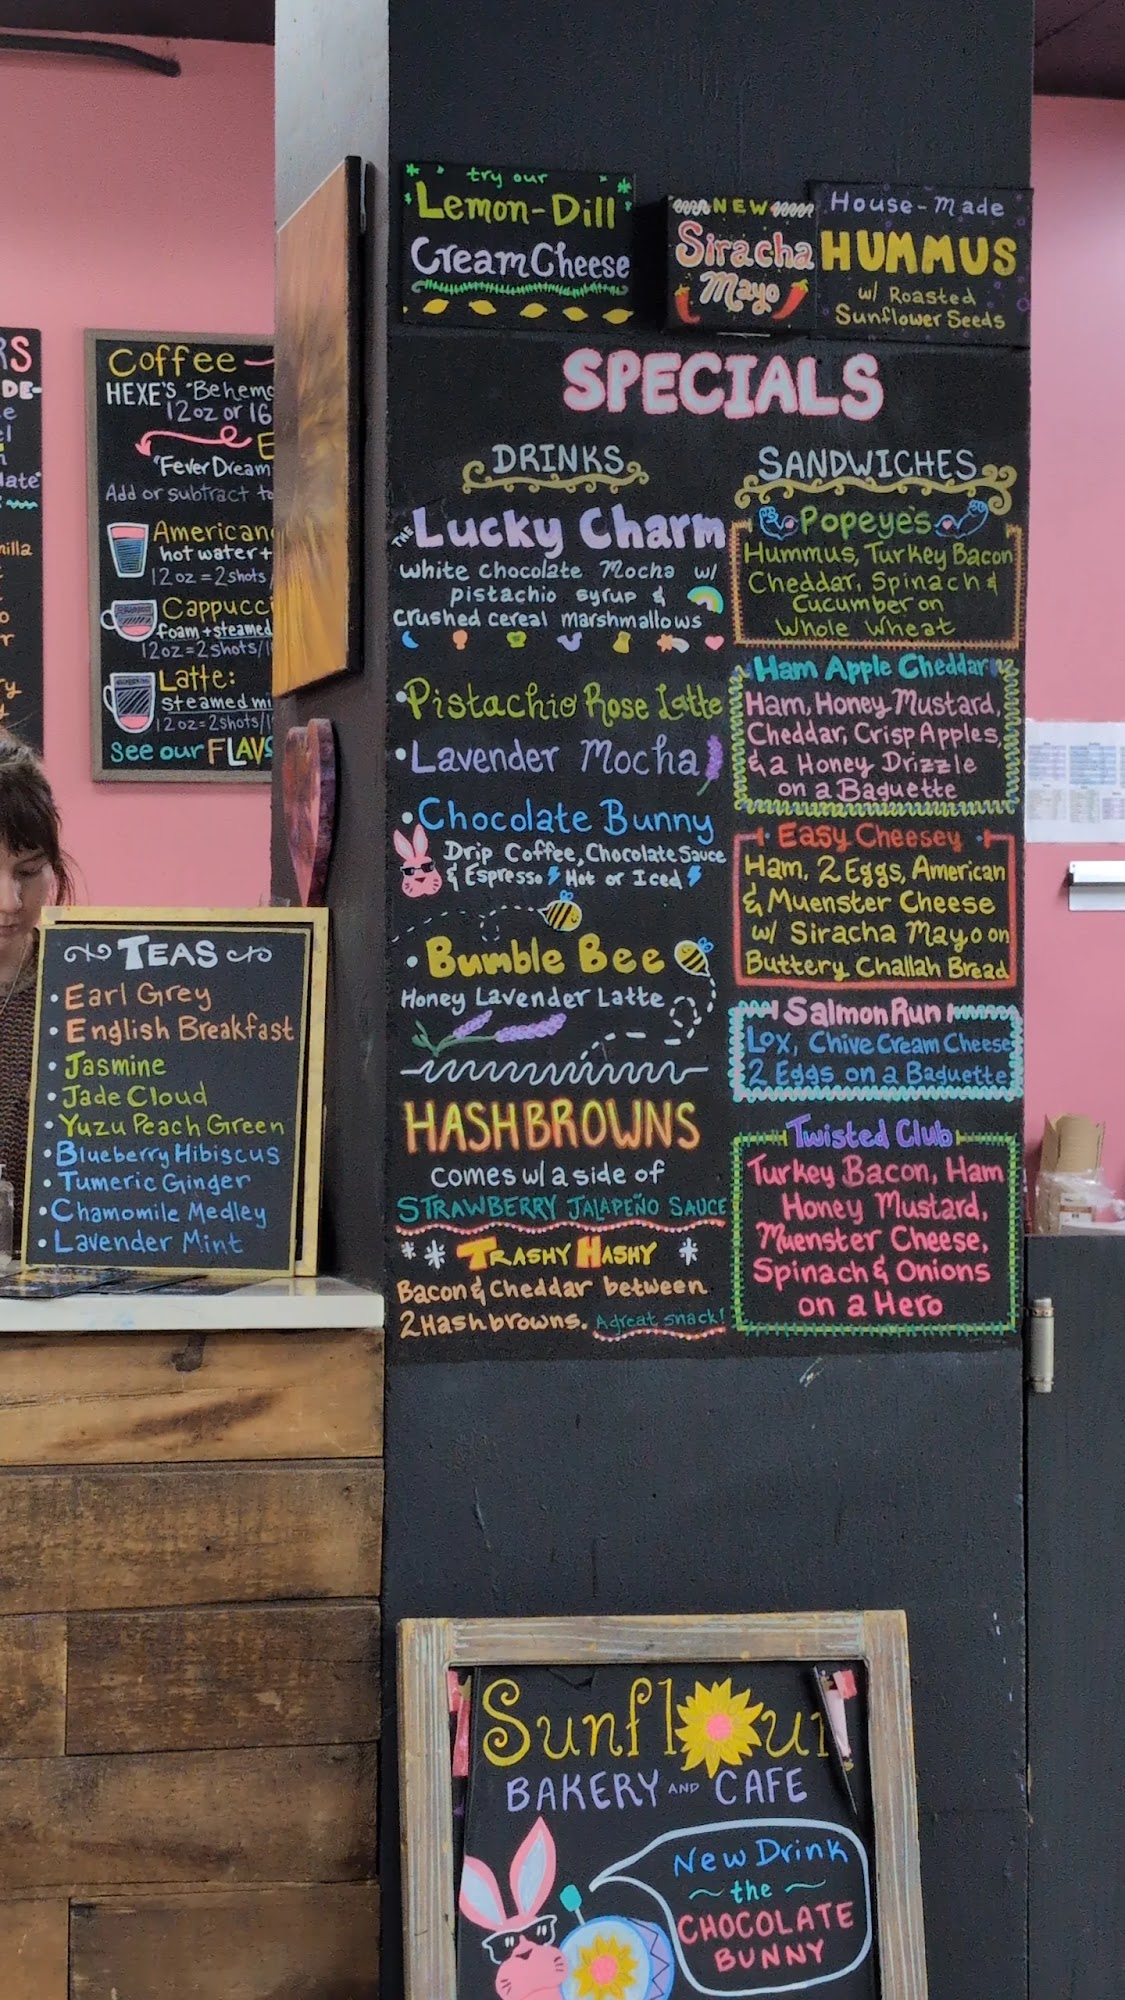 try our
Lemon-Dill
Cream Cheese
NEW
Siracha
Mayo
House-Made
HUMMUS
w/ Roasted
Sunflower Seeds
SPECIALS
DRINKS
THE Lucky Charm
white chocolate Mocha w/
pistachio syrup &
crushed cereal marshmallows
•Pistachio Rose Latte
•Lavender Mocha
•Chocolate Bunny
Drip Coffee, Chocolate Sauce
& Espresso Hot or Iced
•Bumble Bee
Honey Lavender Latte
HASHBROWNS
comes w/ a side of
STRAWBERRY JALAPEÑO SAUCE
TRASHY HASHY
Bacon & Cheddar between
2 Hashbrowns. A great snack!
SANDWICHES
Popeye's
Hummus, Turkey Bacon
Cheddar, Spinach &
Cucumber on
Whole Wheat
Ham Apple Cheddar
Ham, Honey Mustard,
Cheddar, Crisp Apples,
& a Honey Drizzle
on a Baguette
Easy Cheesey
Ham, 2 Eggs, American
& Muenster Cheese
w/ Siracha Mayo on
Buttery Challah Bread
Salmon Run
Lox, Chive Cream Cheese
2 Eggs on a Baguette
Twisted Club
Turkey Bacon, Ham
Honey Mustard,
Muenster Cheese,
Spinach & Onions
on a Hero
RS
DE-
Coffee
HEXE'S "Behemo
12oz or 16
E
"Fever Dream
Add or subtract
American
hot water +
12 oz = 2 shots
Cappucci
foam + steamed
12oz = 2 shots/1
Latte:
steamed mi
12oz = 2 shots/1
See our FLAV
TEAS
• Earl Grey
• English Breakfast
• Jasmine
• Jade Cloud
• Yuzu Peach Green
• Blueberry Hibiscus
• Tumeric Ginger
• Chamomile Medley
• Lavender Mint
Sunflour
BAKERY AND CAFE
New Drink
~ the ~
CHOCOLATE
BUNNY